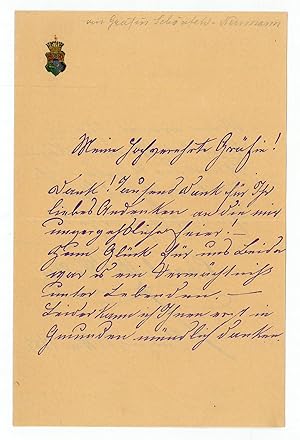 von Gräfin Schönfeld-Neumann
Meine hochverehrte Gräfin!
Dank! Tausend Dank für Ihr
liebes Andenken an die mir
unvergeßliche Feier! –
Zum Glück für uns Beide
war es ein Vermächtniß
unter Lebenden. –
Leider kann ich Ihnen erst in
Gmunden mündlich danken